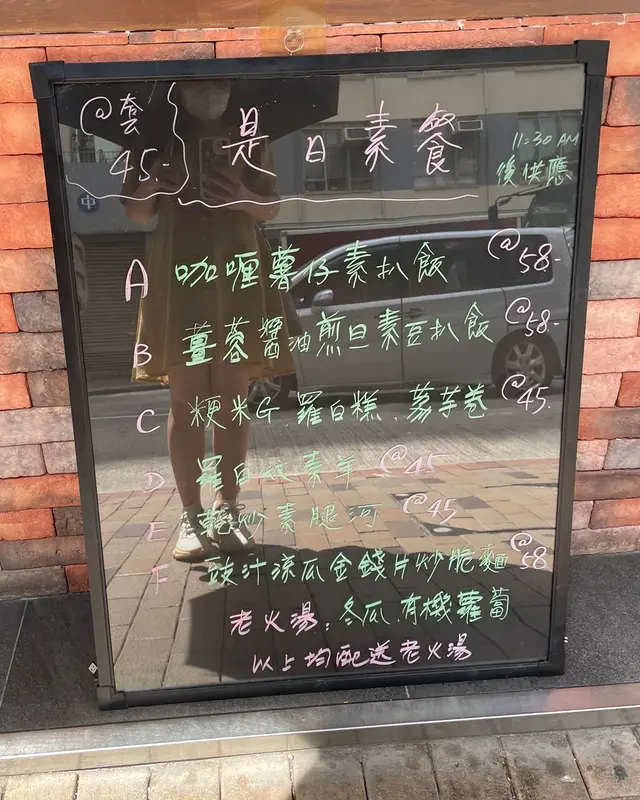 @套
45.-
是日素餐
11:30 AM
後供應
A 咖喱薯仔素扒飯 @58-
B 薑蓉醬油煎旦素豆扒飯 @58-
C 粳米G 羅白糕、荔芋卷 @45.
D 羅白炆素羊 @45
E 乾炒素腿河 @45
F 豉汁涼瓜金錢片炒脆麵 @58
老火湯：冬瓜.有機蘿蔔
以上均配送老火湯
中